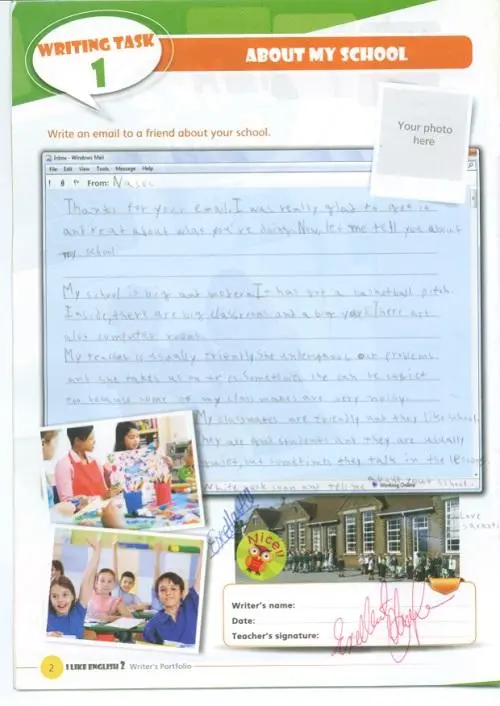 WRITING TASK
1
ABOUT MY SCHOOL
Write an email to a friend about your school.
Your photo
here
Inbox - Windows Mail
File Edit View Tools Message Help
From:
Thanks for your email. I was really glad to get it
and read about what you're doing. Now, let me tell you about
my school.
My school is big and modern. It has got a basketball pitch.
Inside, there are big classrooms and a big yard. There are
also computer room.
My teacher is usually friendly. She understands our problems
and she takes us on trips. Sometimes she can be
because some of my classmates are very noisy.
My classmates are friendly and they like school.
They are good students and they are usually
quiet, but sometimes they talk in the lessons
Write back soon and tell me about your school.
Working Online
Love
Excellent!
Nice!!
Writer's name:
Date:
Teacher's signature:
Excellent
2 I LIKE ENGLISH 2 Writer's Portfolio